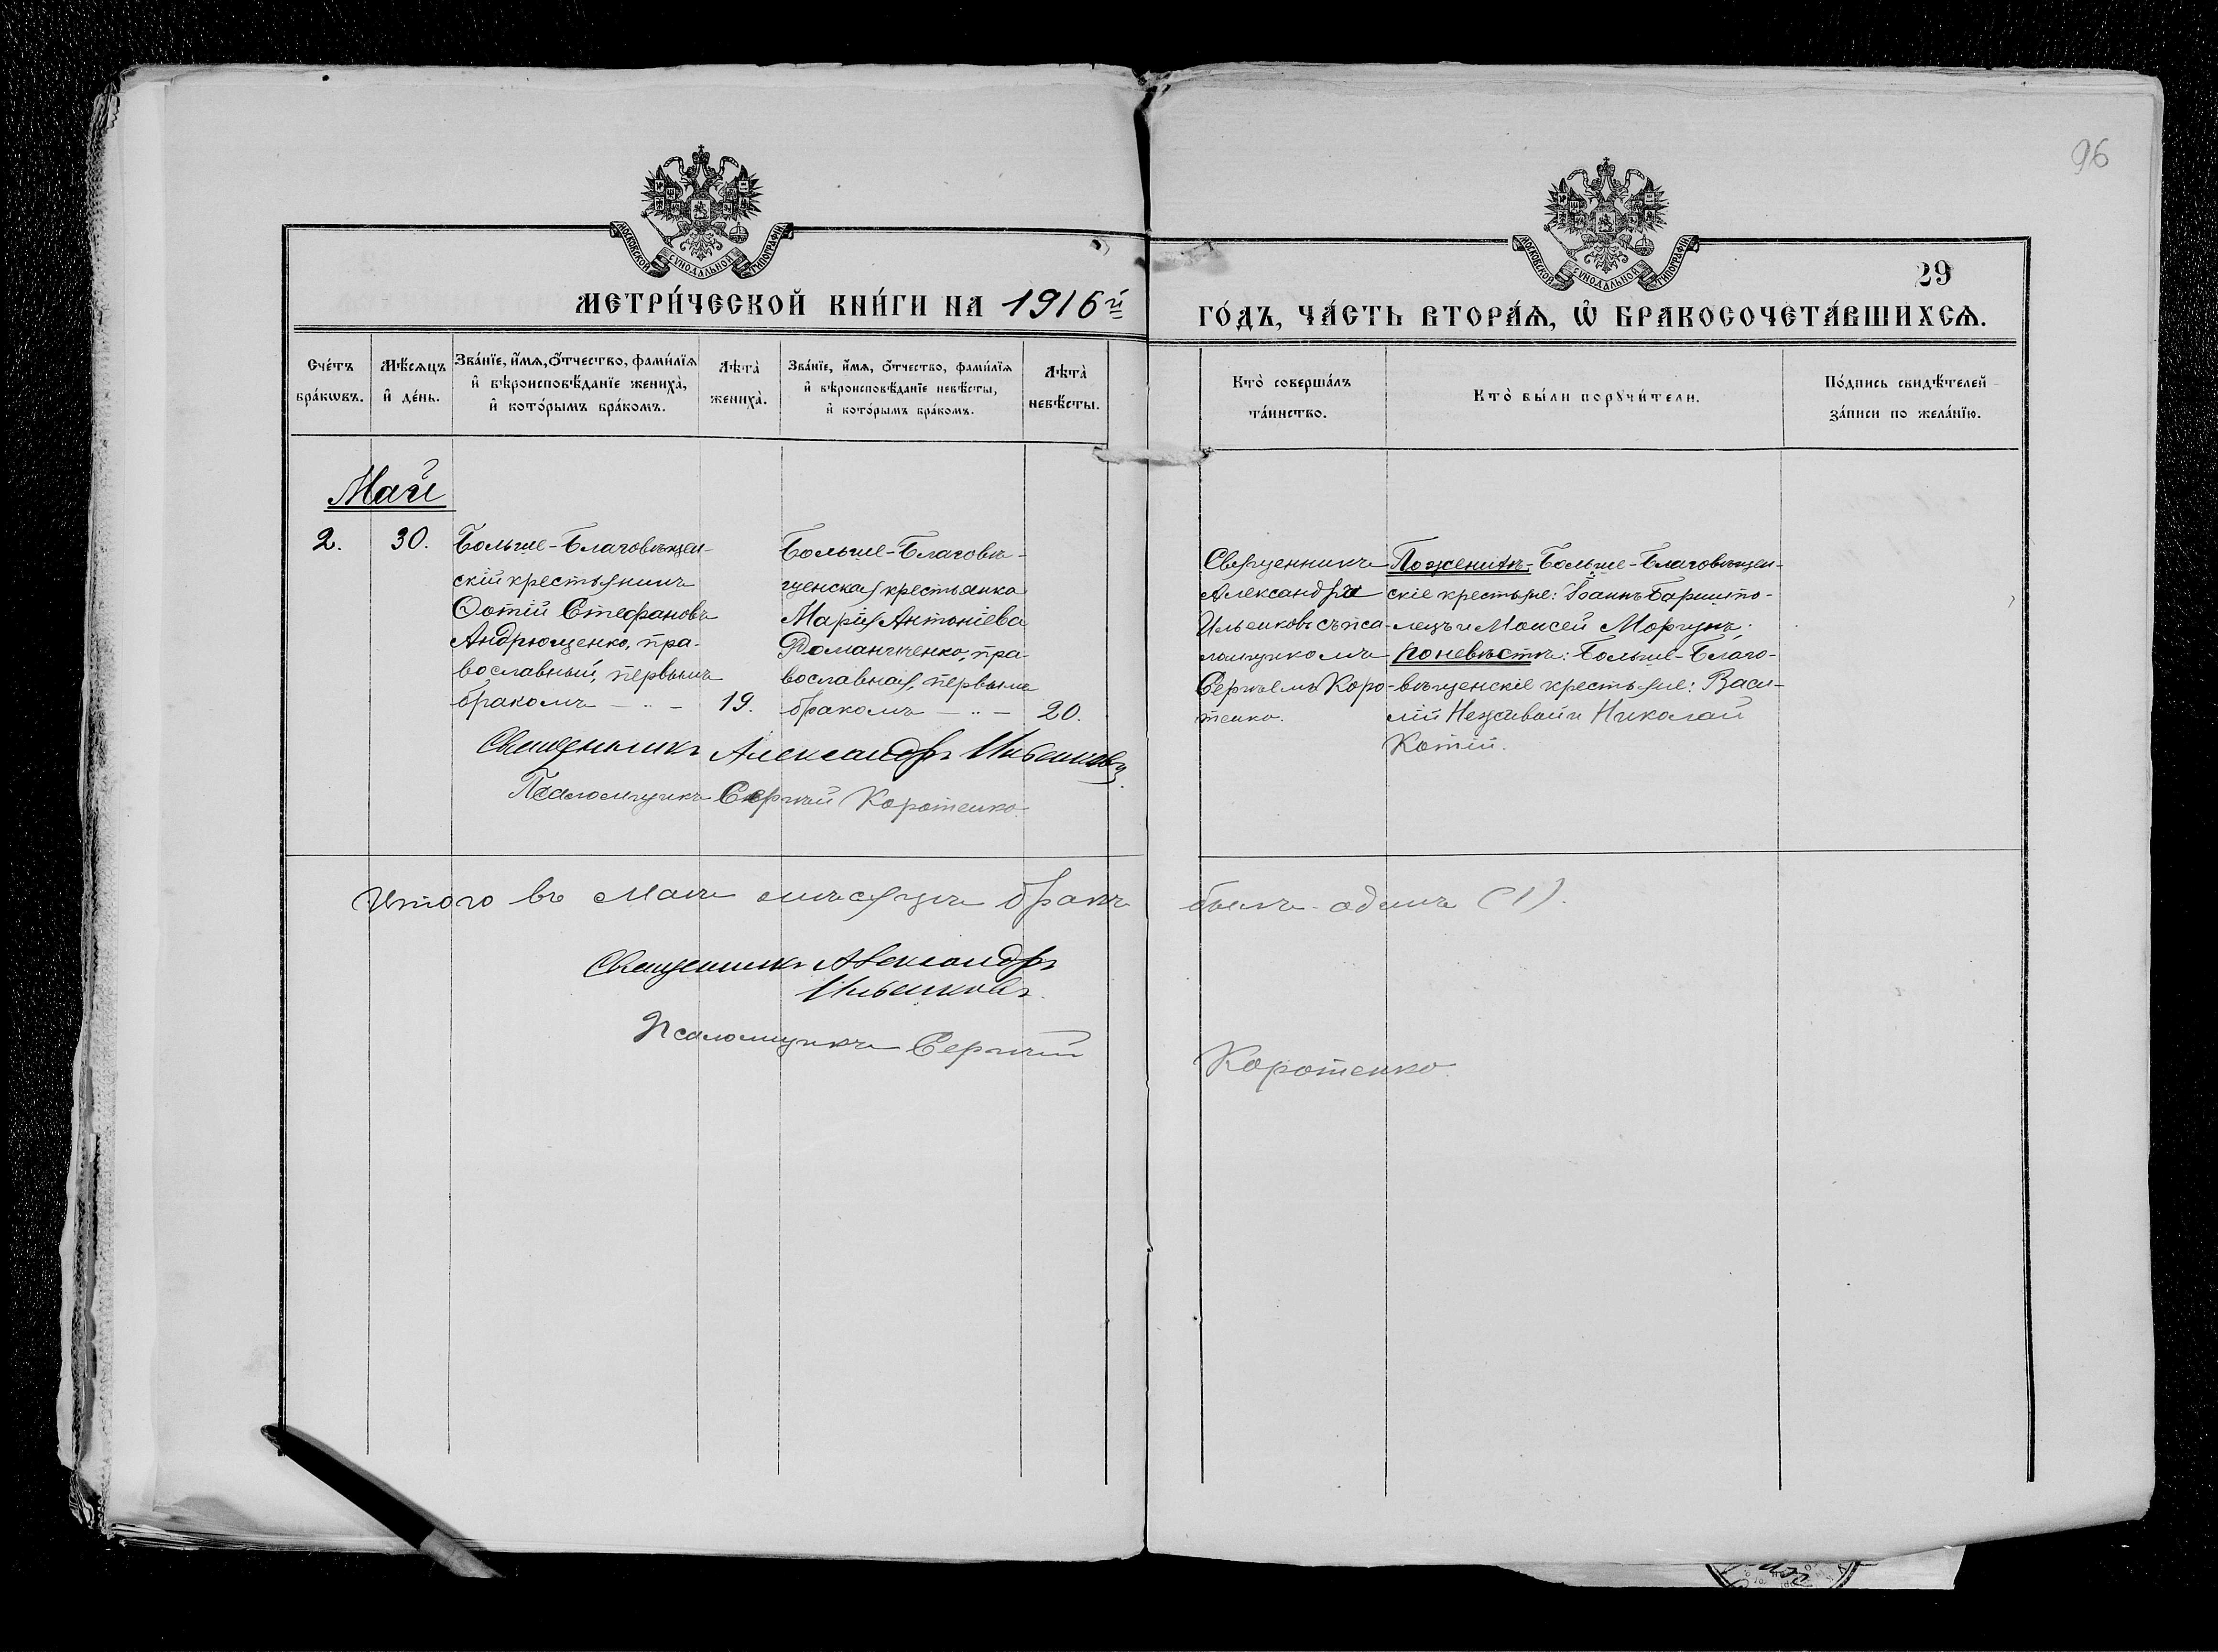 96
МОСКОВСКОЙ СѴНОДАЛЬНОЙ ТИПОГРАФІИ
МОСКОВСКОЙ СѴНОДАЛЬНОЙ ТИПОГРАФІИ
29
МЕТРИ́ЧЕСКОЙ КНИ́ГИ НА 1916й
ГО́ДЪ, ЧА́СТЬ ВТОРА́Ѧ, Ѡ҆ БРАКОСОЧЕТА́ВШИХСѦ.
Сче́тъ бра́кѡвъ.
Мѣ́сѧцъ и҆ де́нь.
Зва́нїе, и҆́мѧ, ѻ҆́тчество, фами́лїѧ
и҆ вѣроисповѣ́данїе жениха̀,
и҆ кото́рымъ бра́комъ.
Лѣта̀ жениха̀.
Зва́нїе, и҆́мѧ, ѻ҆́тчество, фами́лїѧ
и҆ вѣроисповѣ́данїе невѣ́сты,
и҆ кото́рымъ бра́комъ.
Лѣта̀ невѣ́сты.
Кто̀ соверша́лъ
та́инство.
Кто̀ бы́ли порꙋчи́тели.
По́дпись свидѣ́телей
за́писи по жела́нїю.
Май
2.
30.
Больше-Благовѣщен-
скій крестьянинъ
Фотій Стефановъ
Андрющенко, пра-
вославный, первымъ
бракомъ — „ —
19.
Больше-Благовѣ-
щенская крестьянка
Марія Антоніева
Романиченко, пра-
вославная, первымъ
бракомъ — „ —
20.
Священникъ
Александръ
Ильенковъ съ пса-
ломщикомъ
Сергѣемъ Коро-
тенко.
По женихѣ: Больше-Благовѣщен-
скіе крестьяне: Іоаннъ Баришпо-
лецъ и Моисей Моргунъ;
по невѣстѣ: Больше-Благо-
вѣщенскіе крестьяне: Васи-
лій Неживой и Николай
Котій.
Священникъ Александръ Ильенковъ.
Псаломщикъ Сергѣй Коротенко.
Итого въ Маѣ мѣсяцѣ бракъ былъ одинъ (1).
Священникъ Александръ
Ильенковъ.
Псаломщикъ Сергѣй Коротенко.